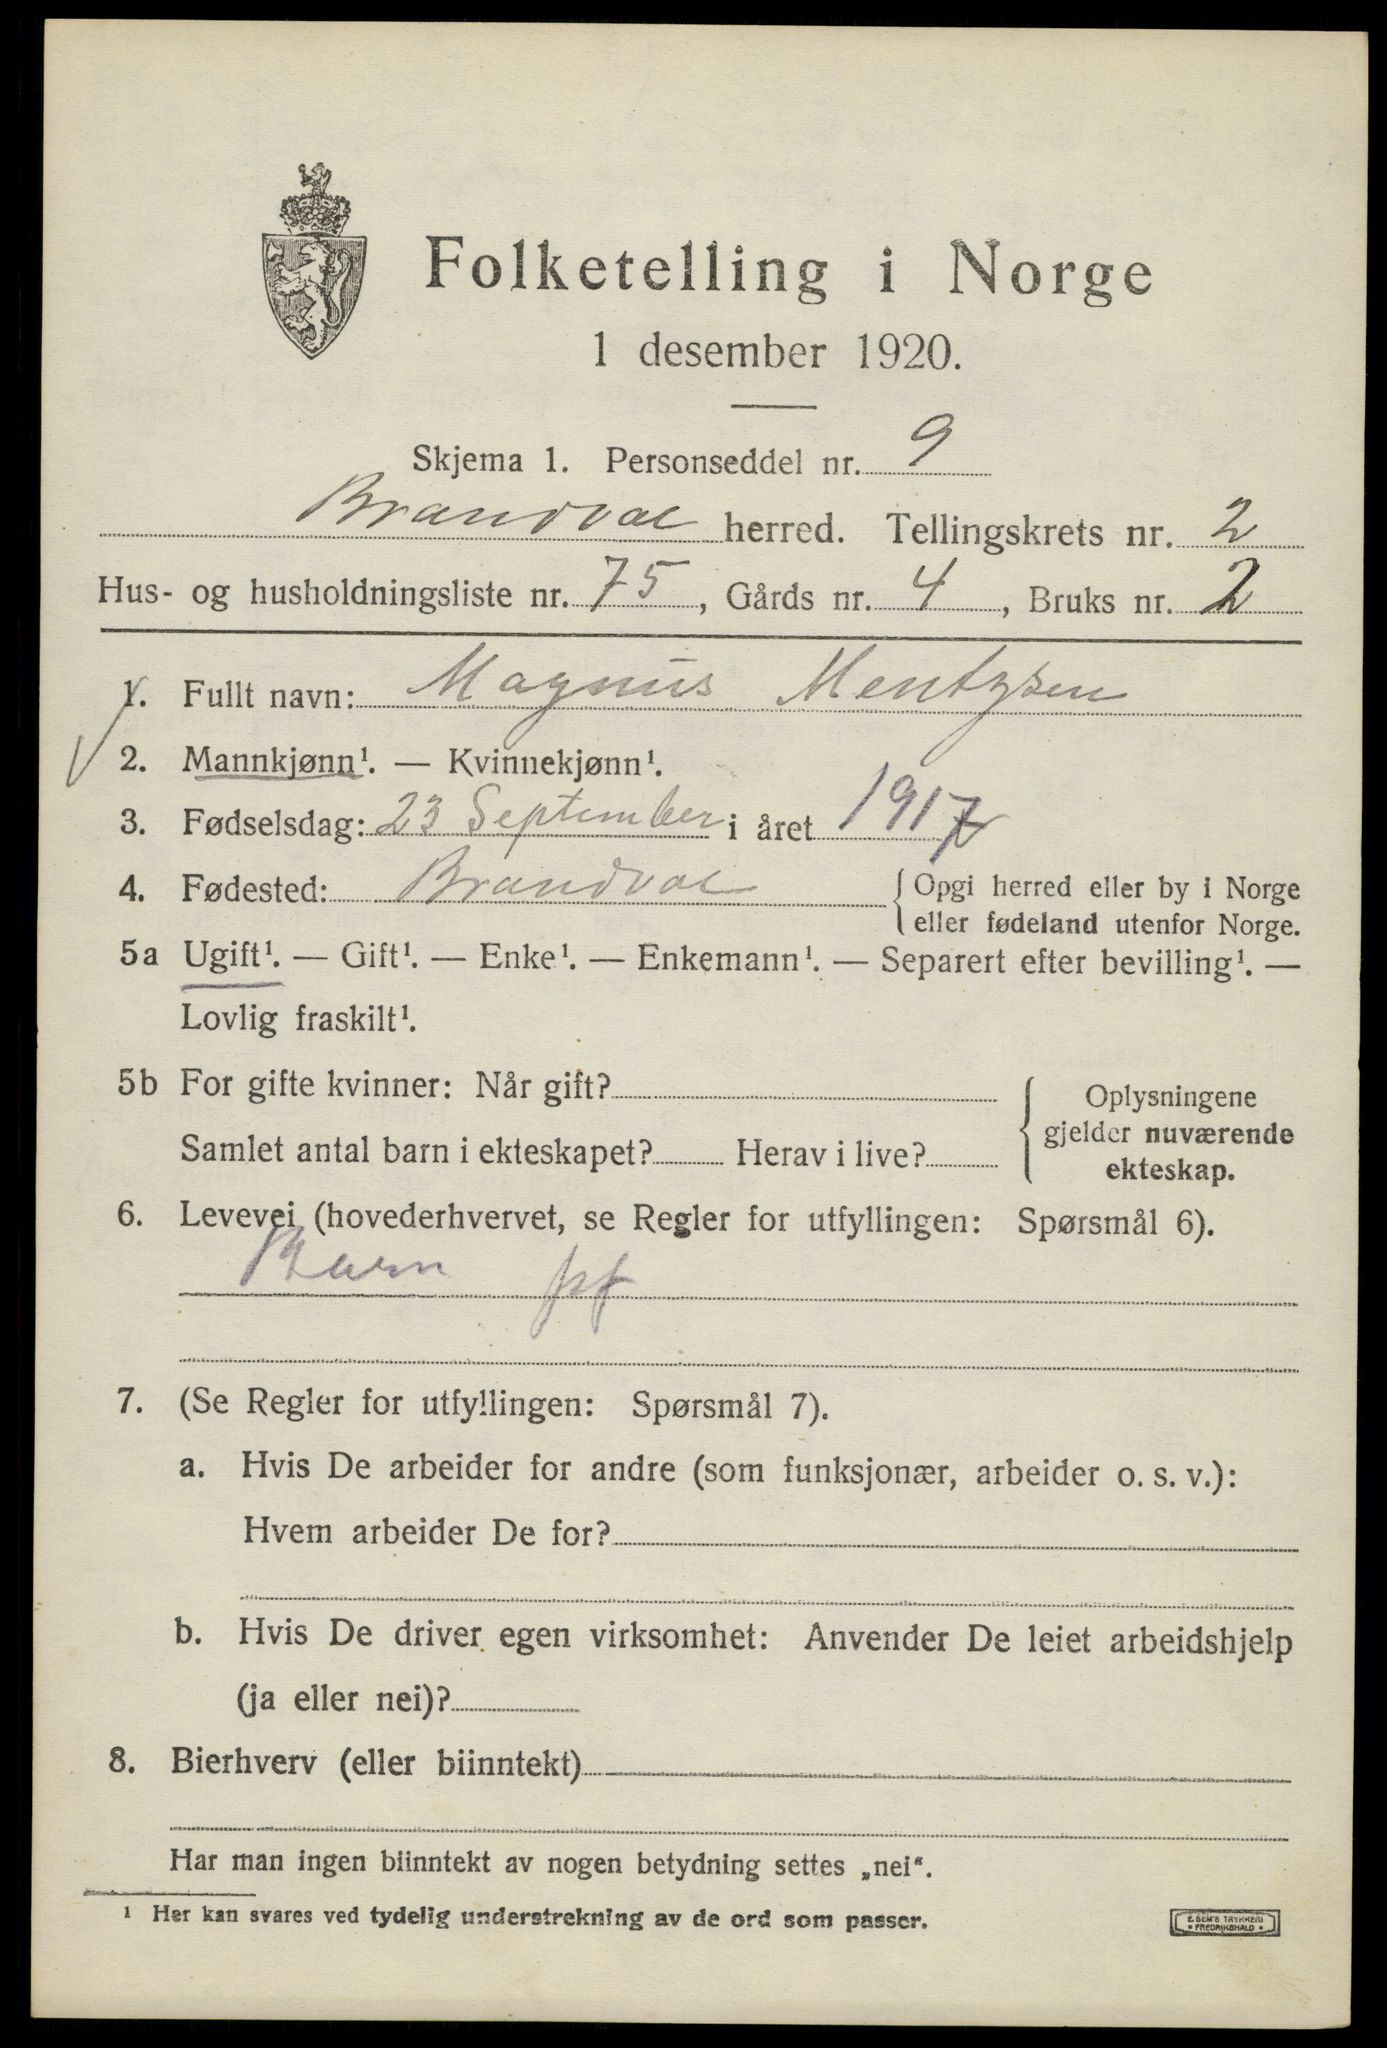 Folketelling i Norge
1 desember 1920.
Skjema 1. Personseddel nr. 9
Brandval herred. Tellingskrets nr. 2
Hus- og husholdningsliste nr. 75, Gårds nr. 4, Bruks nr. 2
1. Fullt navn: Magnus Mentzsen
2. Mannkjønn¹. — Kvinnekjønn¹.
3. Fødselsdag: 23 September i året 1917
4. Fødested: Brandval { Opgi herred eller by i Norge
eller fødeland utenfor Norge.
5a Ugift¹. — Gift¹. — Enke¹. — Enkemann¹. — Separert efter bevilling¹. —
Lovlig fraskilt¹.
5b For gifte kvinner: Når gift?
Samlet antal barn i ekteskapet? Herav i live?
{ Oplysningene
gjelder nuværende
ekteskap.
6. Levevei (hovederhvervet, se Regler for utfyllingen: Spørsmål 6).
Barn
7. (Se Regler for utfyllingen: Spørsmål 7).
a. Hvis De arbeider for andre (som funksjonær, arbeider o. s. v.):
Hvem arbeider De for?
b. Hvis De driver egen virksomhet: Anvender De leiet arbeidshjelp
(ja eller nei)?
8. Bierhverv (eller biinntekt)
Har man ingen biinntekt av nogen betydning settes „nei“.
¹ Her kan svares ved tydelig understrekning av de ord som passer.
E. SEM'S TRYKKERI
• FREDRIKSHALD •